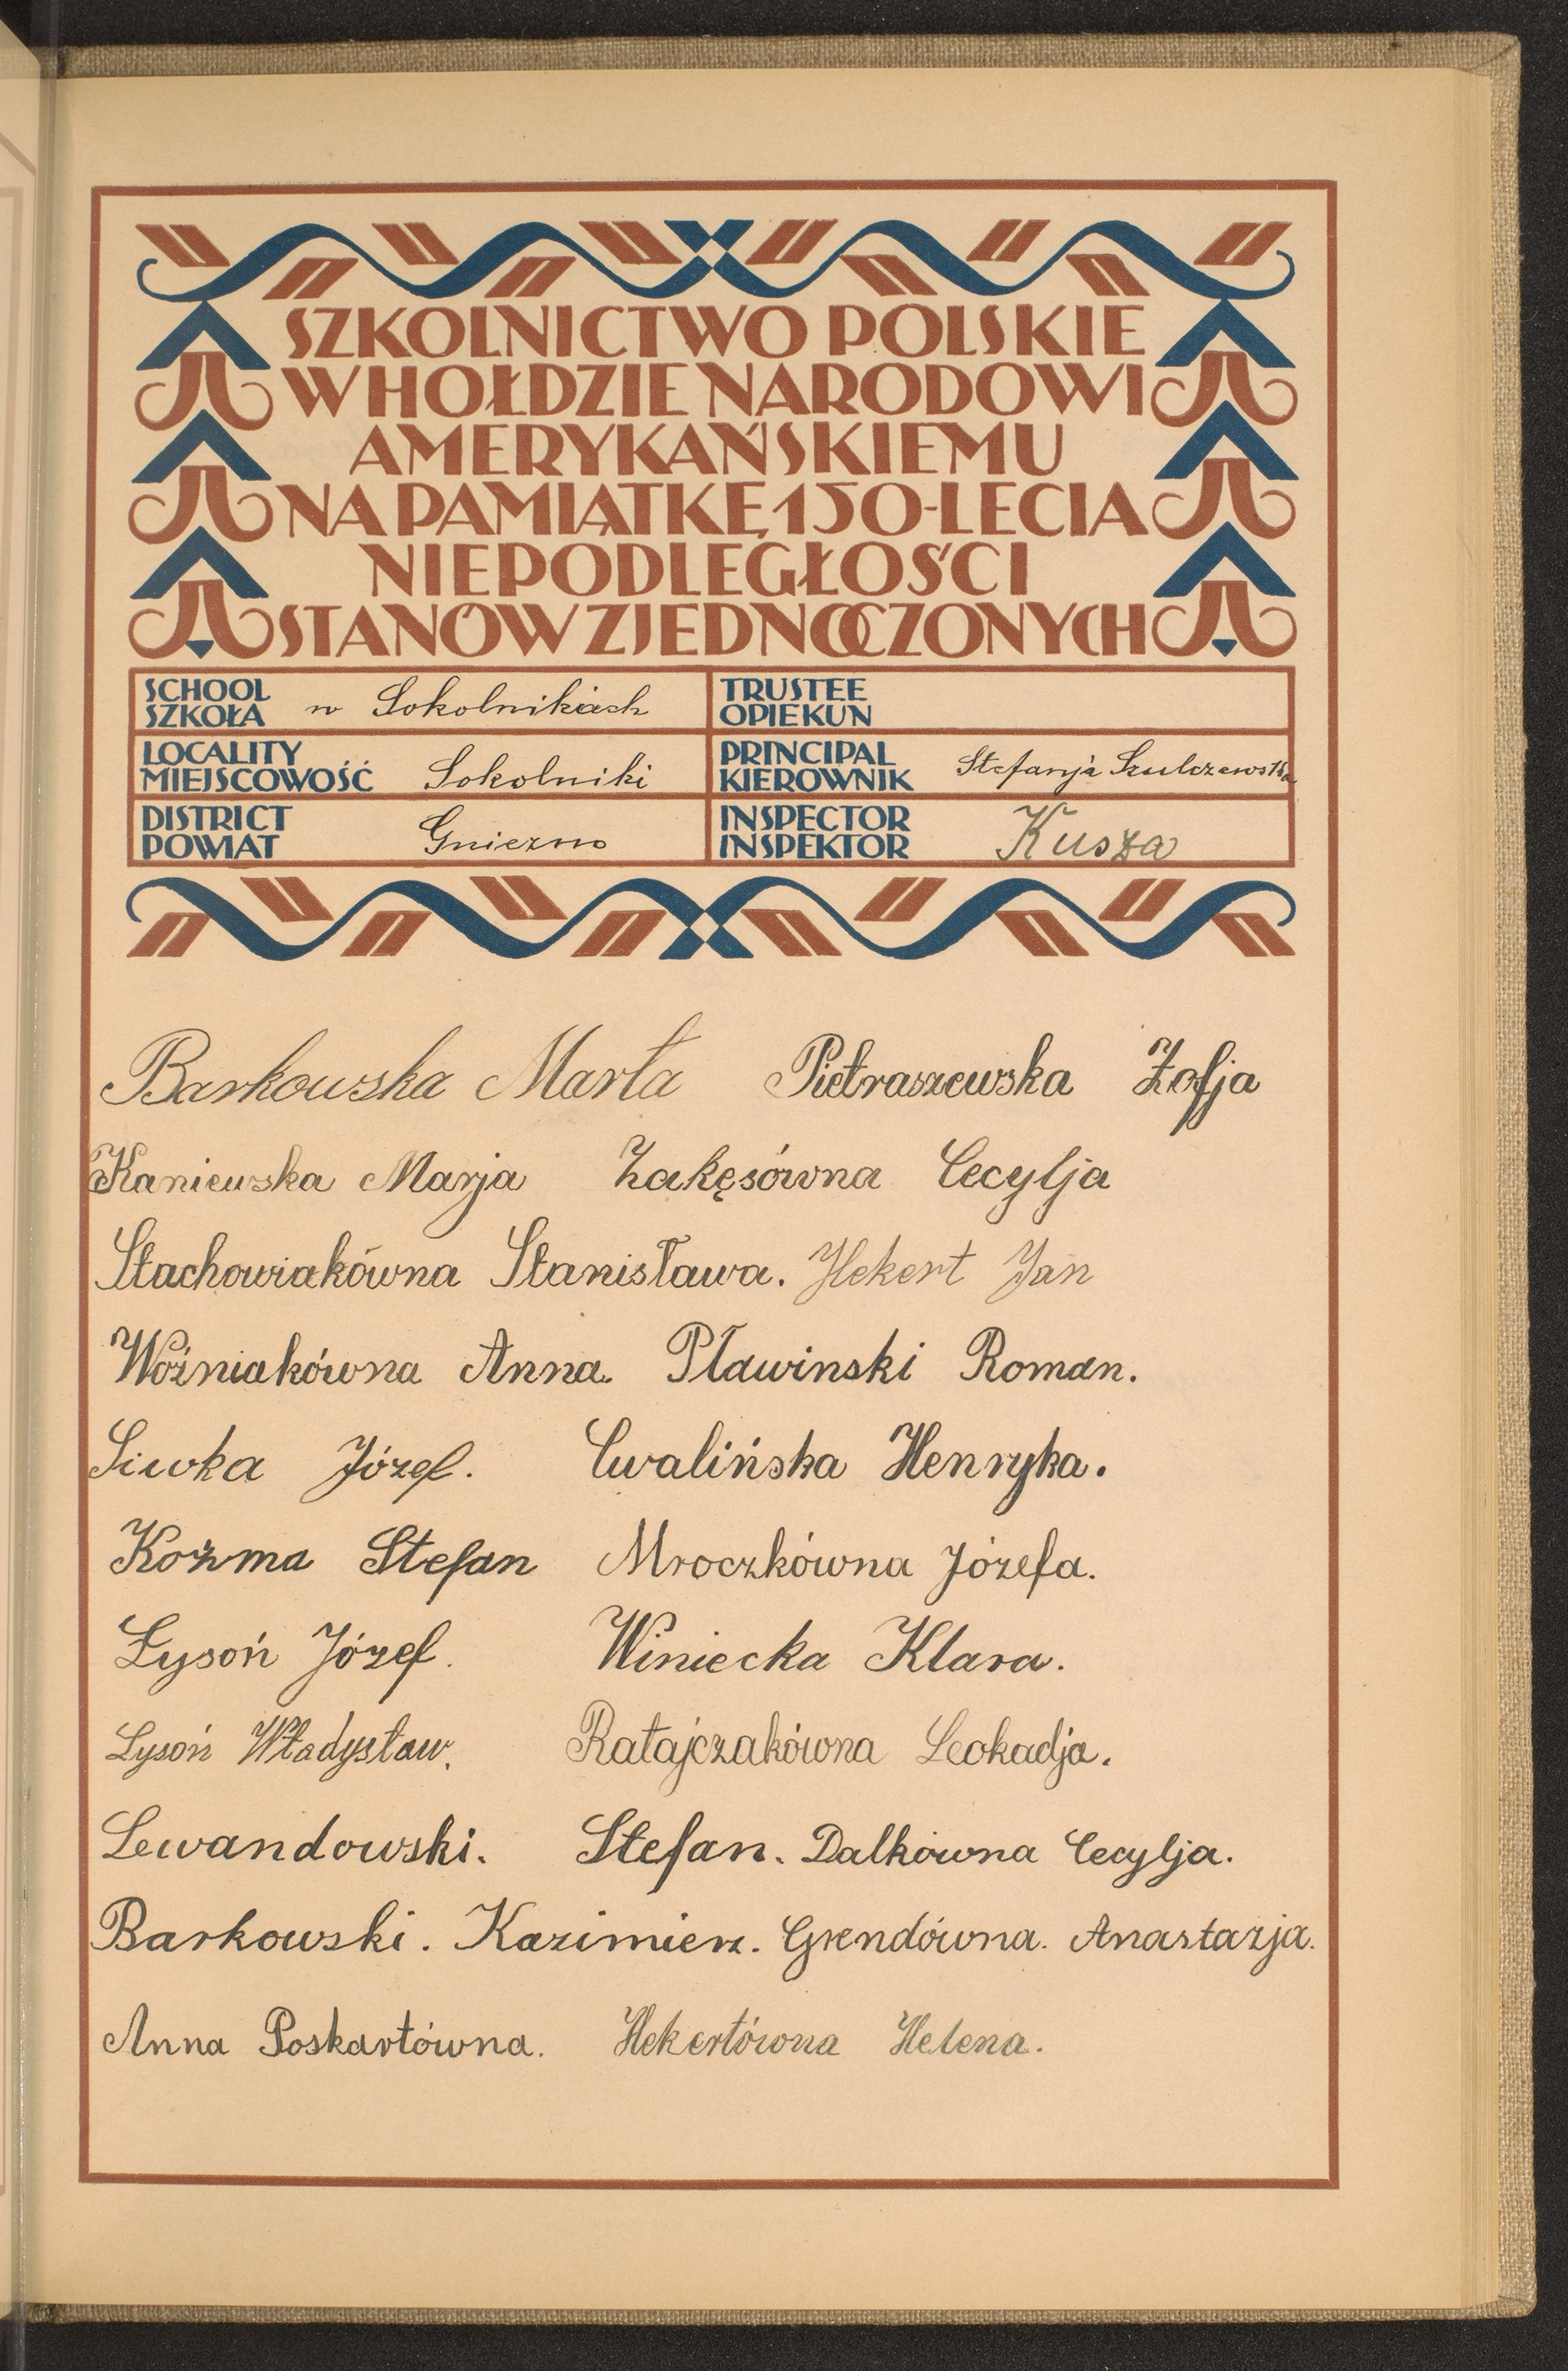 SZKOLNICTWO POLSKIE
W HOŁDZIE NARODOWI
AMERYKAŃSKIEMU
NA PAMIĄTKĘ 150-LECIA
NIEPODLEGŁOŚCI
STANÓW ZJEDNOCZONYCH
SCHOOL
SZKOŁA w Sokolnikach
TRUSTEE
OPIEKUN
LOCALITY
MIEJSCOWOŚĆ Sokolniki
PRINCIPAL
KIEROWNIK Stefanja Szulczewska
DISTRICT
POWIAT Gniezno
INSPECTOR
INSPEKTOR Kusza
Barkowska Marta Pietraszewska Zofja
Kaniewska Marja Zakęsówna Cecylja
Stachowiakówna Stanisława. Hekert Jan
Woźniakówna Anna. Pławinski Roman.
Siwka Józef. Cwalińska Henryka.
Koźma Stefan Mroczkówna Józefa.
Łysoń Józef. Winiecka Klara.
Łysoń Władysław. Ratajczakówna Leokadja.
Lewandowski. Stefan. Dalkówna Cecylja.
Barkowski. Kazimierz. Grendówna. Anastazja.
Anna Poskartówna. Hekertówna Helena.